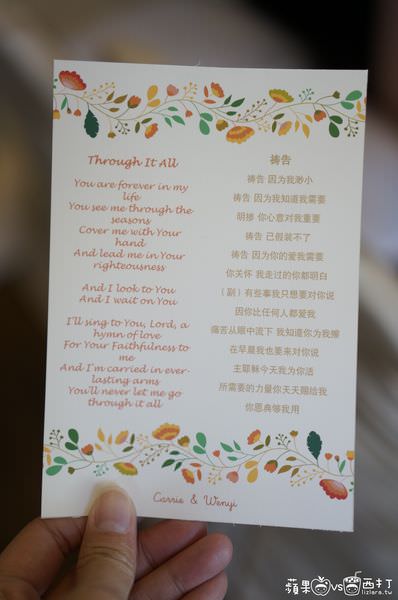 Through It All
You are forever in my
life
You see me through the
seasons
Cover me with Your
hand
And lead me in Your
righteousness
And I look to You
And I wait on You
I'll sing to You, Lord, a
hymn of love
For Your Faithfulness to
me
And I'm carried in ever-
lasting arms
You'll never let me go
through it all
祷告
祷告 因为我渺小
祷告 因为我知道我需要
明瞭 你心意对我重要
祷告 已假装不了
祷告 因为你的爱我需要
你关怀 我走过的你都明白
（副）有些事我只想要对你说
因你比任何人都爱我
痛苦从眼中流下 我知道你为我擦
在早晨我也要来对你说
主耶稣今天我为你活
所需要的力量你天天赐给我
你恩典够我用
Carrie & Wenyi
蘋果 vs 西打
lizlara.tw